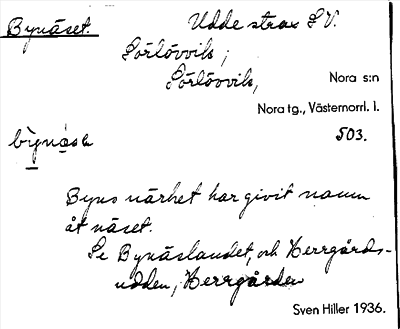 Bynäset. Udde strax S V.
Sörlövvik;
Sörlövvik, Nora s:n
Nora tg., Västernorrl. l.
bỳnǟsə 503.
Byns närhet har givit namn
åt näset.
Se Bynäslandet, och Herrgårds-
udden, Herrgården
Sven Hiller 1936.